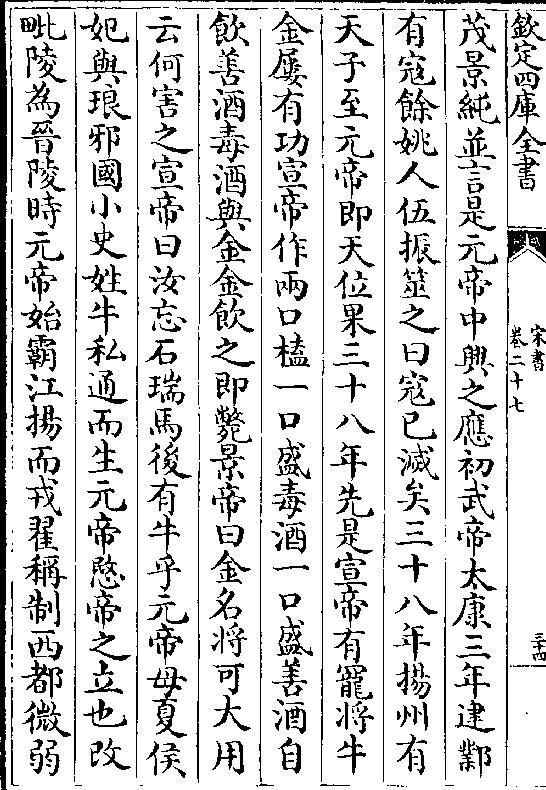 欽定四庫全書
宋書
卷二十七
三十四
茂景純並言是元帝中興之應初武帝太康三年建鄴
有寇餘姚人伍振筮之曰寇已滅矣三十八年揚州有
天子至元帝即天位果三十八年先是宣帝有寵將牛
金屢有功宣帝作兩口榼一口盛毒酒一口盛善酒自
飲善酒毒酒與金金飲之即斃景帝曰金名將可大用
云何害之宣帝曰汝忘石瑞馬後有牛乎元帝母夏侯
妃與琅邪國小史姓牛私通而生元帝愍帝之立也改
毗陵為晉陵時元帝始霸江揚而戎翟稱制西都微弱